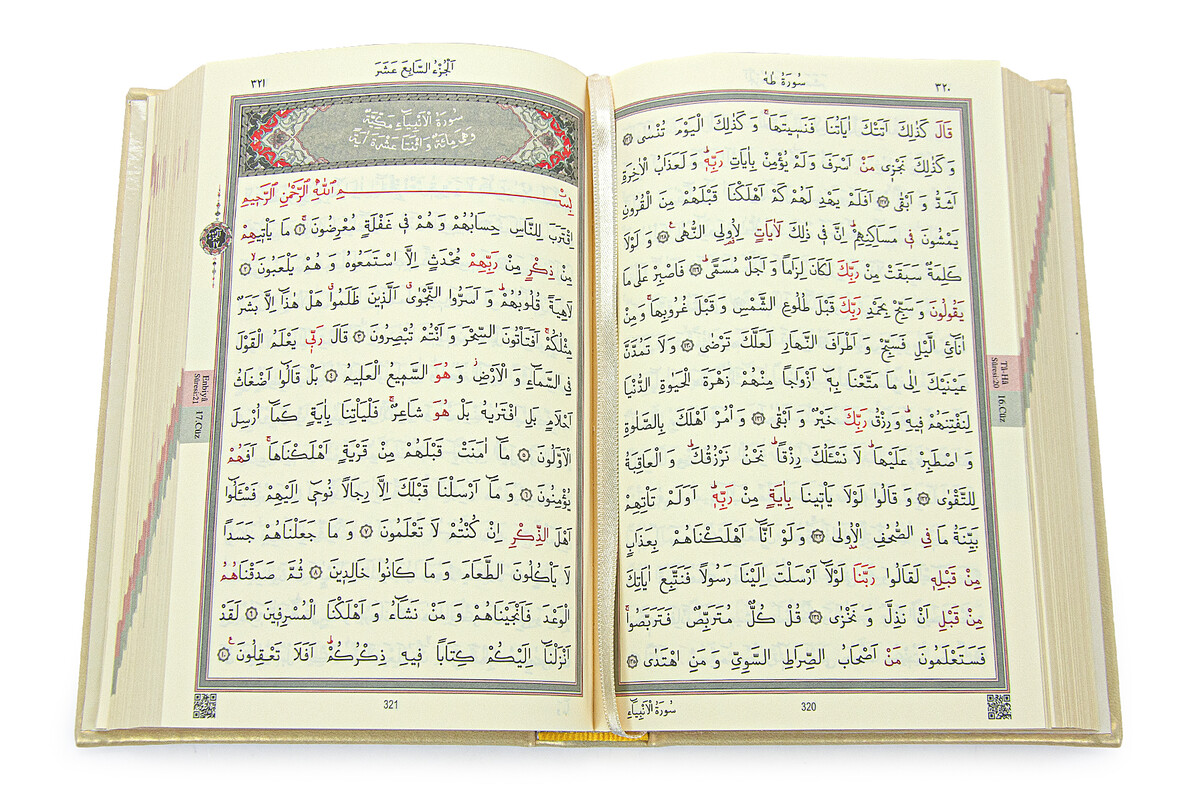 ٣٢٠
سُورَةُ طٰهٰ
قَالَ كَذٰلِكَ اَتَتْكَ اٰيَاتُنَا فَنَسٖيتَهَاۚ وَ كَذٰلِكَ الْيَوْمَ تُنْسٰى ﴿١٢٦﴾
وَ كَذٰلِكَ نَجْزٖى مَنْ اَسْرَفَ وَلَمْ يُؤْمِنْ بِاٰيَاتِ رَبِّهٖؕ وَ لَعَذَابُ الْاٰخِرَةِ
اَشَدُّ وَ اَبْقٰى ﴿١٢٧﴾ اَفَلَمْ يَهْدِ لَهُمْ كَمْ اَهْلَكْنَا قَبْلَهُمْ مِنَ الْقُرُونِ
يَمْشُونَ فٖى مَسَاكِنِهِمْؕ اِنَّ فٖى ذٰلِكَ لَاٰيَاتٍ لِاُولِى النُّهٰىࣖ ﴿١٢٨﴾ وَ لَوْلَا
كَلِمَةٌ سَبَقَتْ مِنْ رَبِّكَ لَكَانَ لِزَاماً وَ اَجَلٌ مُسَمًّىؕ ﴿١٢٩﴾ فَاصْبِرْ عَلٰى مَا
يَقُولُونَ وَ سَبِّحْ بِحَمْدِ رَبِّكَ قَبْلَ طُلُوعِ الشَّمْسِ وَ قَبْلَ غُرُوبِهَاۚ وَ مِنْ
اٰنَٓائِ الَّيْلِ فَسَبِّحْ وَ اَطْرَافَ النَّهَارِ لَعَلَّكَ تَرْضٰى ﴿١٣٠﴾ وَ لَا تَمُدَّنَّ
عَيْنَيْكَ اِلٰى مَا مَتَّعْنَا بِهٖٓ اَزْوَاجاً مِنْهُمْ زَهْرَةَ الْحَيٰوةِ الدُّنْيَا
لِنَفْتِنَهُمْ فٖيهِؕ وَ رِزْقُ رَبِّكَ خَيْرٌ وَ اَبْقٰى ﴿١٣١﴾ وَ أْمُرْ اَهْلَكَ بِالصَّلٰوةِ
وَ اصْطَبِرْ عَلَيْهَاؕ لَا نَسْـَٔلُكَ رِزْقاًؕ نَحْنُ نَرْزُقُكَؕ وَ الْعَاقِبَةُ
لِلتَّقْوٰى ﴿١٣٢﴾ وَ قَالُوا لَوْلَا يَأْتٖينَا بِاٰيَةٍ مِنْ رَبِّهٖؕ اَوَلَمْ تَأْتِهِمْ
بَيِّنَةُ مَا فِى الصُّحُفِ الْاُولٰى ﴿١٣٣﴾ وَ لَوْ اَنَّٓا اَهْلَكْنَاهُمْ بِعَذَابٍ
مِنْ قَبْلِهٖ لَقَالُوا رَبَّنَا لَوْلَٓا اَرْسَلْتَ اِلَيْنَا رَسُولاً فَنَتَّبِعَ اٰيَاتِكَ
مِنْ قَبْلِ اَنْ نَذِلَّ وَ نَخْزٰى ﴿١٣٤﴾ قُلْ كُلٌّ مُتَرَبِّصٌ فَتَرَبَّصُواۚ
فَسَتَعْلَمُونَ مَنْ اَصْحَابُ الصِّرَاطِ السَّوِىِّ وَ مَنِ اهْتَدٰى ﴿١٣٥﴾
Tâ-Hâ
Sûresi:20
16.Cüz
320
سُورَةُ الْاَنْبِيَٓاءِ
اَلْجُزْءُ السَّابِعَ عَشَرَ
٣٢١
سُورَةُ الْاَنْبِيَٓاءِ مَكِّيَّةٌ
وَهِىَ مِائَةٌ وَ اثْنَتَا عَشْرَةَ اٰيَةً
بِسْمِ اللّٰهِ الرَّحْمٰنِ الرَّحٖيمِ
اِقْتَرَبَ لِلنَّاسِ حِسَابُهُمْ وَ هُمْ فٖى غَفْلَةٍ مُعْرِضُونَۚ ﴿١﴾ مَا يَأْتٖيهِمْ
مِنْ ذِكْرٍ مِنْ رَبِّهِمْ مُحْدَثٍ اِلَّا اسْتَمَعُوهُ وَ هُمْ يَلْعَبُونَۙ ﴿٢﴾
لَاهِيَةً قُلُوبُهُمْؕ وَ اَسَرُّوا النَّجْوٰىۗ اَلَّذٖينَ ظَلَمُواۗ هَلْ هٰذَٓا اِلَّا بَشَرٌ
مِثْلُكُمْۚ اَفَتَأْتُونَ السِّحْرَ وَ اَنْتُمْ تُبْصِرُونَ ﴿٣﴾ قَالَ رَبّٖى يَعْلَمُ الْقَوْلَ
فِى السَّمَٓاءِ وَ الْاَرْضِؗ وَ هُوَ السَّمٖيعُ الْعَلٖيمُ ﴿٤﴾ بَلْ قَالُٓوا اَضْغَاثُ
اَحْلَامٍ بَلِ افْتَرٰيهُ بَلْ هُوَ شَاعِرٌۚ فَلْيَأْتِنَا بِاٰيَةٍ كَمَٓا اُرْسِلَ
الْاَوَّلُونَ ﴿٥﴾ مَٓا اٰمَنَتْ قَبْلَهُمْ مِنْ قَرْيَةٍ اَهْلَكْنَاهَاۚ اَفَهُمْ
يُؤْمِنُونَ ﴿٦﴾ وَ مَٓا اَرْسَلْنَا قَبْلَكَ اِلَّا رِجَالاً نُوحٖٓى اِلَيْهِمْ فَسْـَٔلُٓوا
اَهْلَ الذِّكْرِ اِنْ كُنْتُمْ لَا تَعْلَمُونَ ﴿٧﴾ وَ مَا جَعَلْنَاهُمْ جَسَداً
لَا يَأْكُلُونَ الطَّعَامَ وَ مَا كَانُوا خَالِدٖينَ ﴿٨﴾ ثُمَّ صَدَقْنَاهُمُ
الْوَعْدَ فَاَنْجَيْنَاهُمْ وَ مَنْ نَشَٓاءُ وَ اَهْلَكْنَا الْمُسْرِفٖينَ ﴿٩﴾ لَقَدْ
اَنْزَلْنَٓا اِلَيْكُمْ كِتَاباً فٖيهِ ذِكْرُكُمْؕ اَفَلَا تَعْقِلُونَࣖ ﴿١٠﴾
Enbiyâ
Sûresi:21
17.Cüz
321